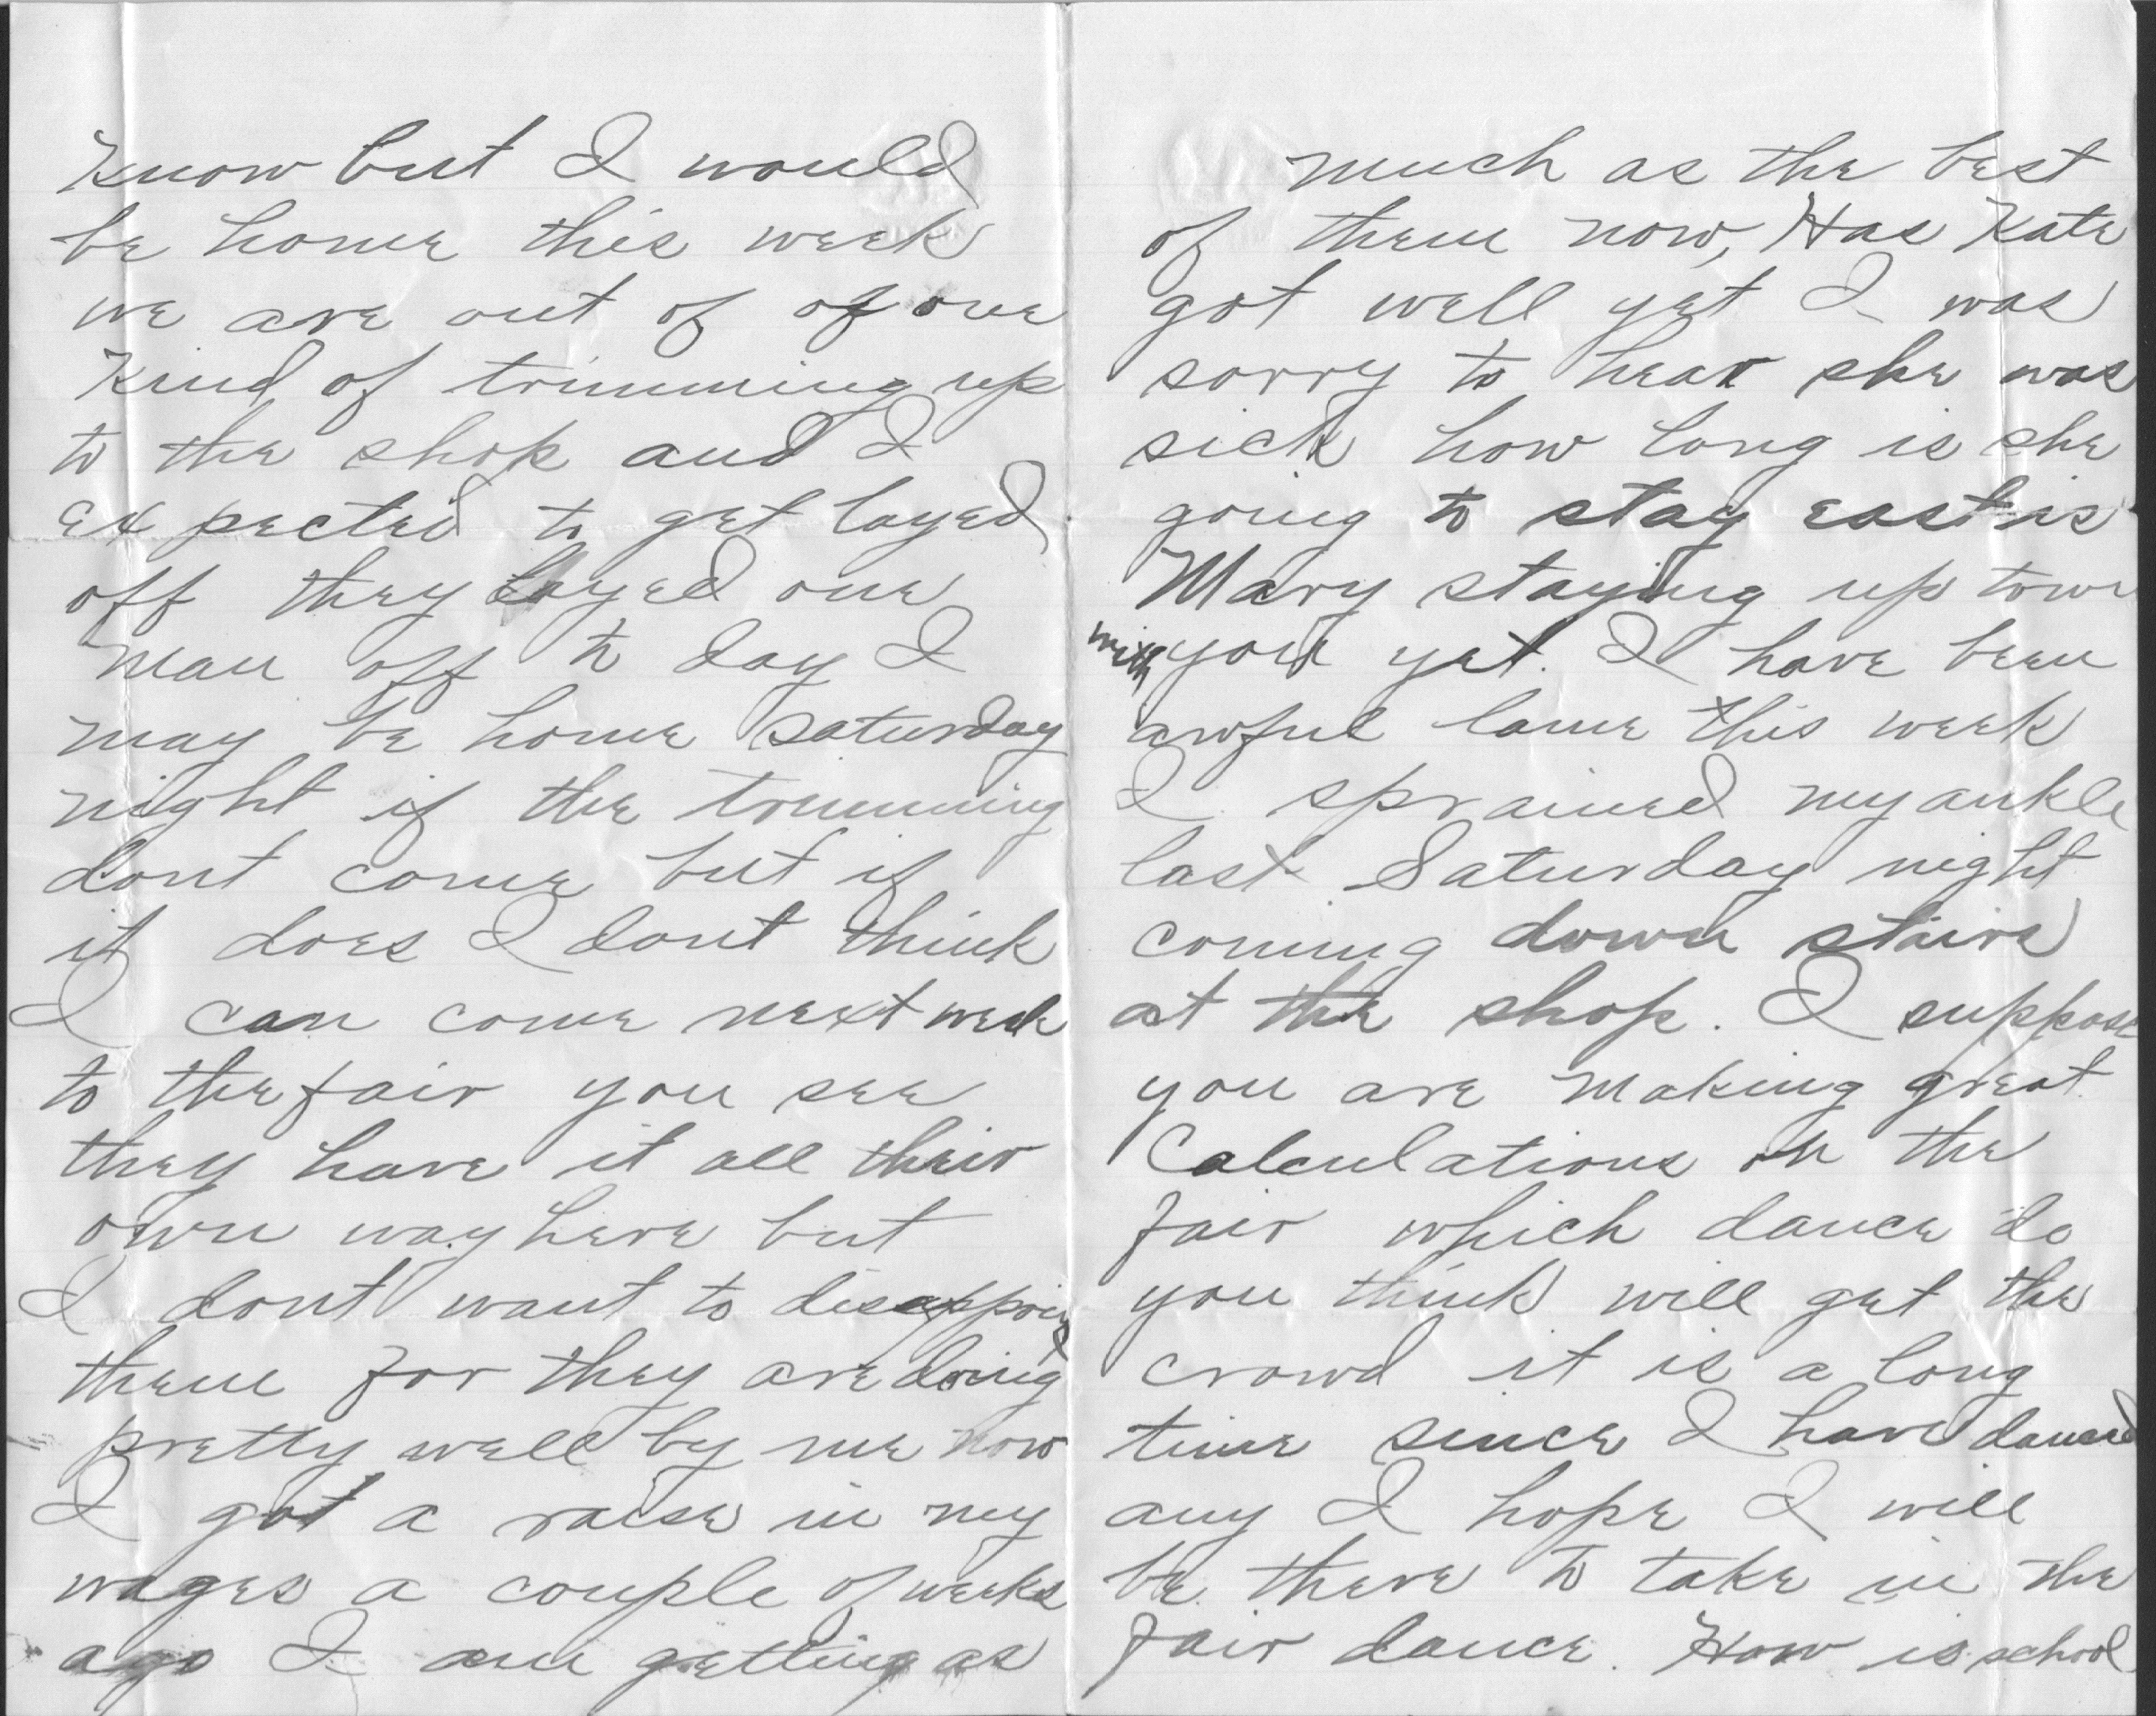 Know but I would
be home this week
we are out of of one
Kind of trimming up
to the shop and I
expected to get layed
off they layed one
man off to day I
may be home Saturday
night if the trimming
dont come but if
it does I dont think
I can come next week
to the fair you see
they have it all their
own way here but
I dont want to disappoint
them for they are doing
pretty well by me now
I got a raise in my
wages a couple of weeks
ago I am getting as
much as the best
of them now, Has Kate
got well yet I was
sorry to hear she was
sick how long is she
going to stay east is
Mary staying up town
with you yet. I have been
awful lame this week
I sprained my ankle
last Saturday night
coming down stairs
at the shop. I suppose
you are making great
Calculations on the
fair which dance do
you think will get the
crowd it is a long
time since I have danced
any I hope I will
be there to take in the
fair dance. How is school